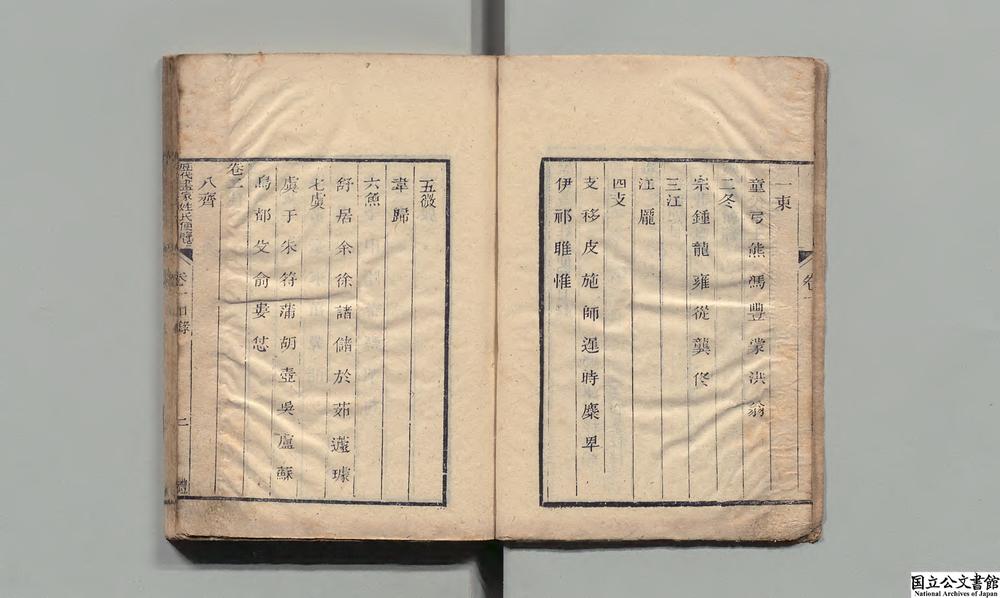 卷一
一東
童弓熊馮豐蒙洪翁
二冬
宗鍾龍雍從龔佟
三江
江龐
四支
支移皮施師遲時麋卑
伊祁睢惟
五微
韋歸
六魚
舒居余徐諸儲於茹蘧璩
七虞
虞于朱符蒲胡壺吳盧蘇
烏都殳俞婁
卷二
八齊
歷代畫家姓氏便覽
卷一目錄
二
国立公文書館
National Archives of Japan